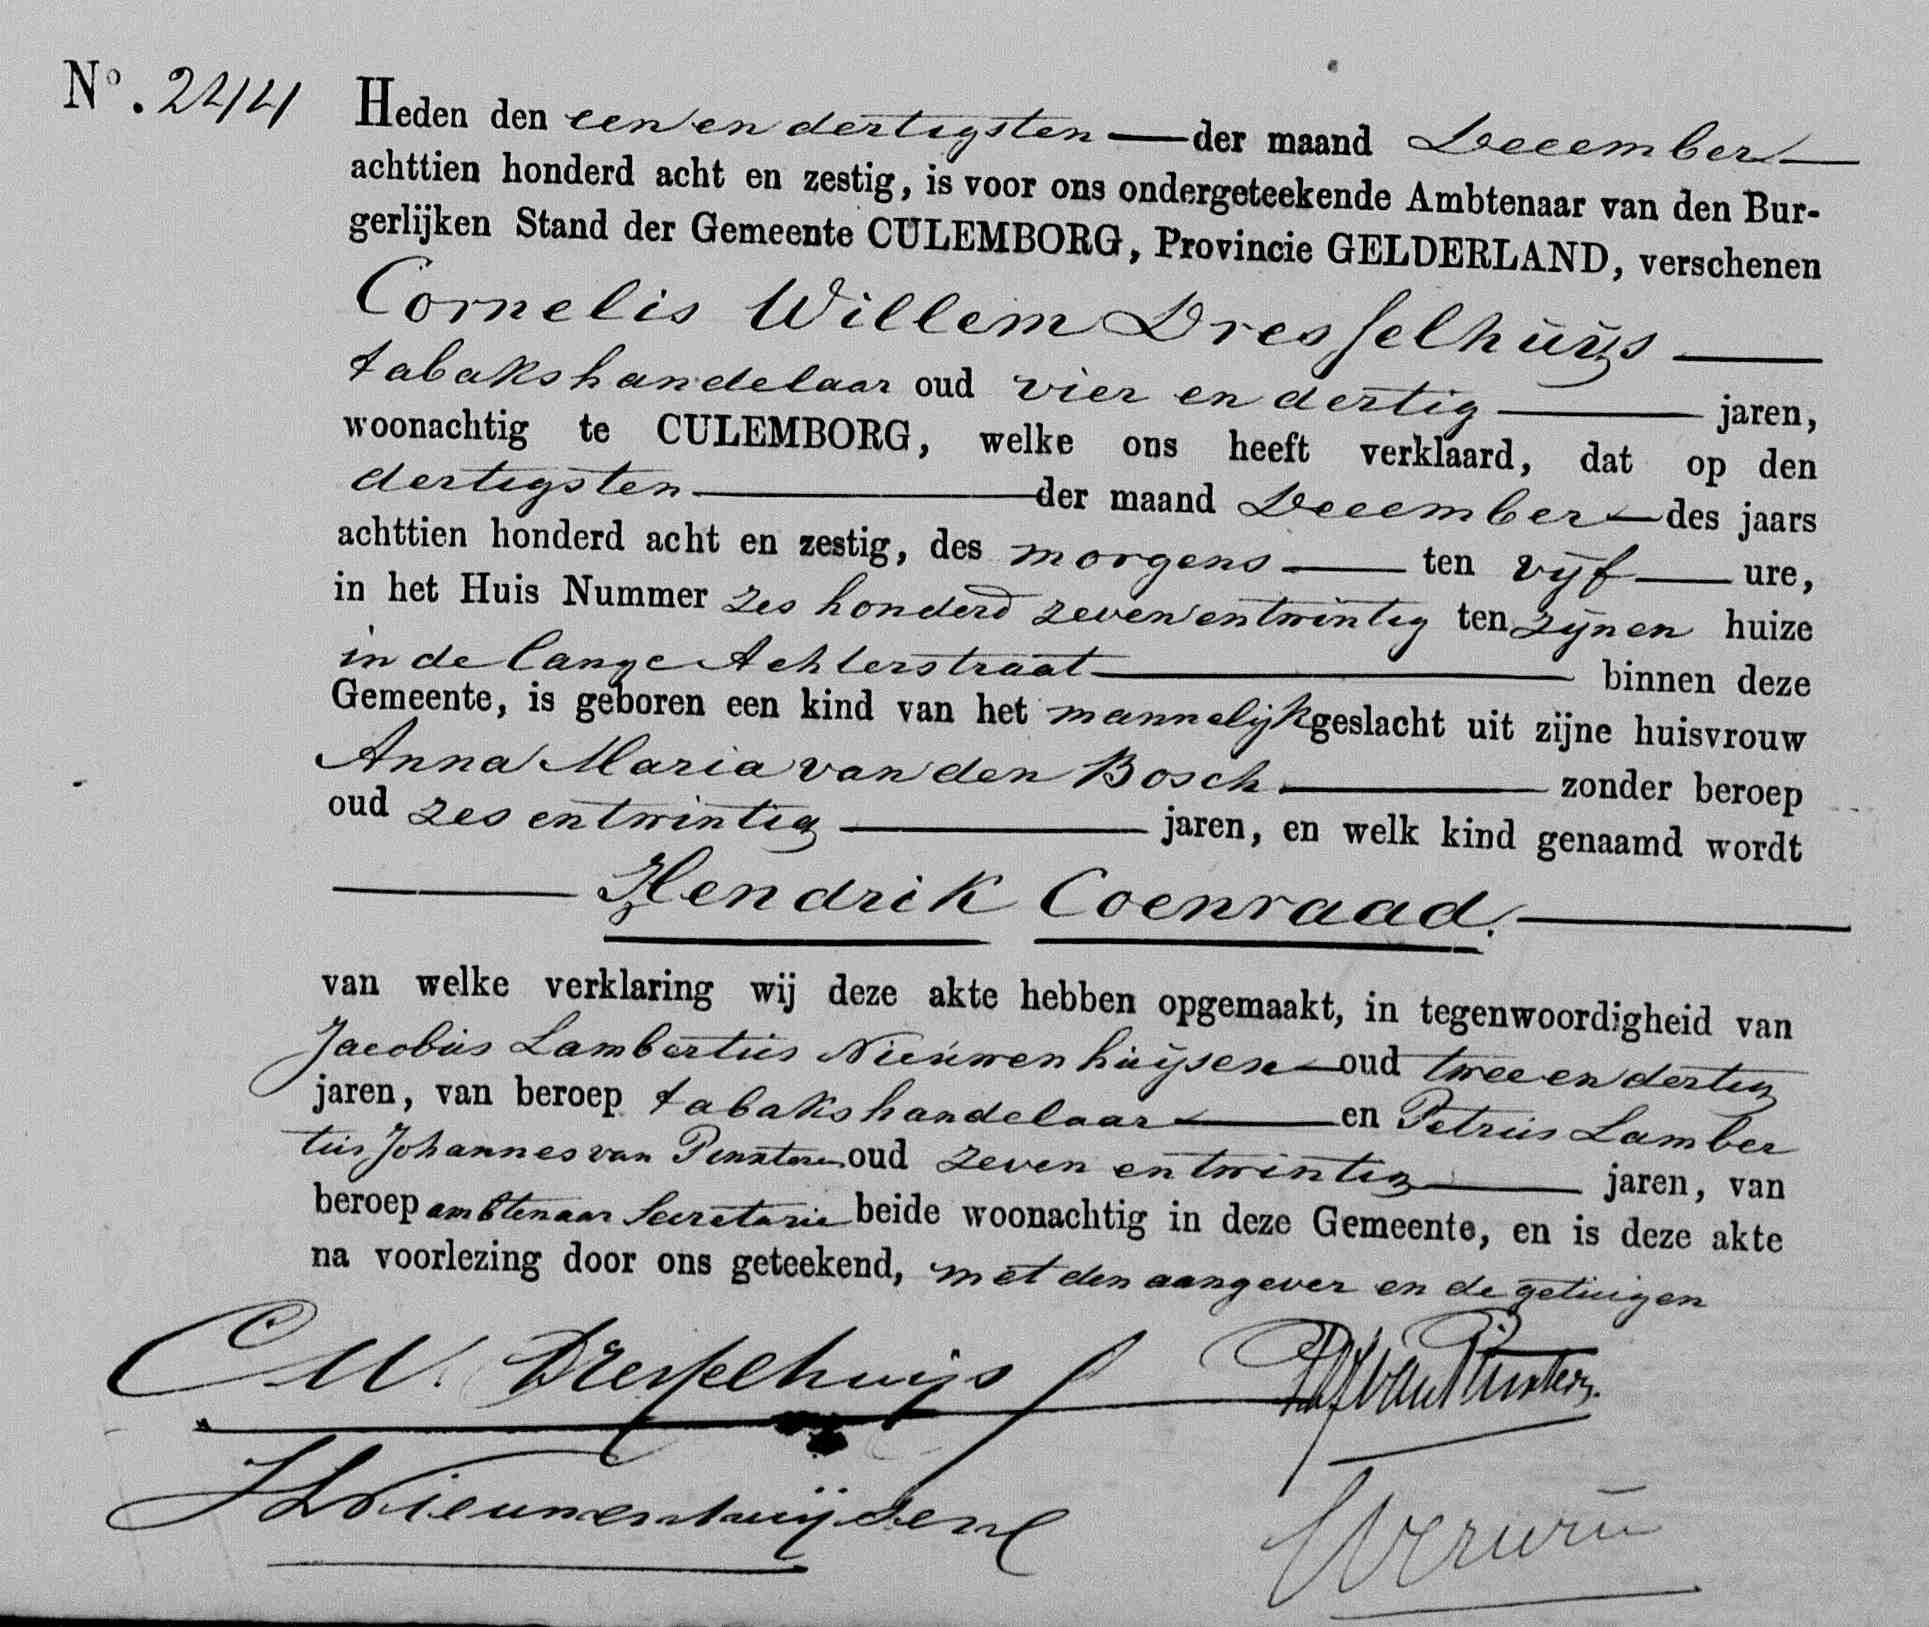 No. 244
Heden den een en dertigsten der maand December
achttien honderd acht en zestig, is voor ons ondergeteekende Ambtenaar van den Bur-
gerlijken Stand der Gemeente CULEMBORG, Provincie GELDERLAND, verschenen
Cornelis Willem Dresselhuijs
tabakshandelaar oud vier en dertig jaren,
woonachtig te CULEMBORG, welke ons heeft verklaard, dat op den
dertigsten der maand December des jaars
achttien honderd acht en zestig, des morgens ten vijf ure,
in het Huis Nummer zes honderd zeven en twintig ten zijnen huize
in de lange Achterstraat binnen deze
Gemeente, is geboren een kind van het mannelijk geslacht uit zijne huisvrouw
Anna Maria van den Bosch zonder beroep
oud zes en twintig jaren, en welk kind genaamd wordt
Hendrik Coenraad.
van welke verklaring wij deze akte hebben opgemaakt, in tegenwoordigheid van
Jacobus Lambertus Nieuwenhuijsen oud twee en dertig
jaren, van beroep tabakshandelaar en Petrus Lamber
tus Johannes van oud zeven en twintig jaren, van
beroep ambtenaar Secretarie beide woonachtig in deze Gemeente, en is deze akte
na voorlezing door ons geteekend, met den aangever en de getuigen
C W. Dresselhuijs
J L Nieuwenhuijsen